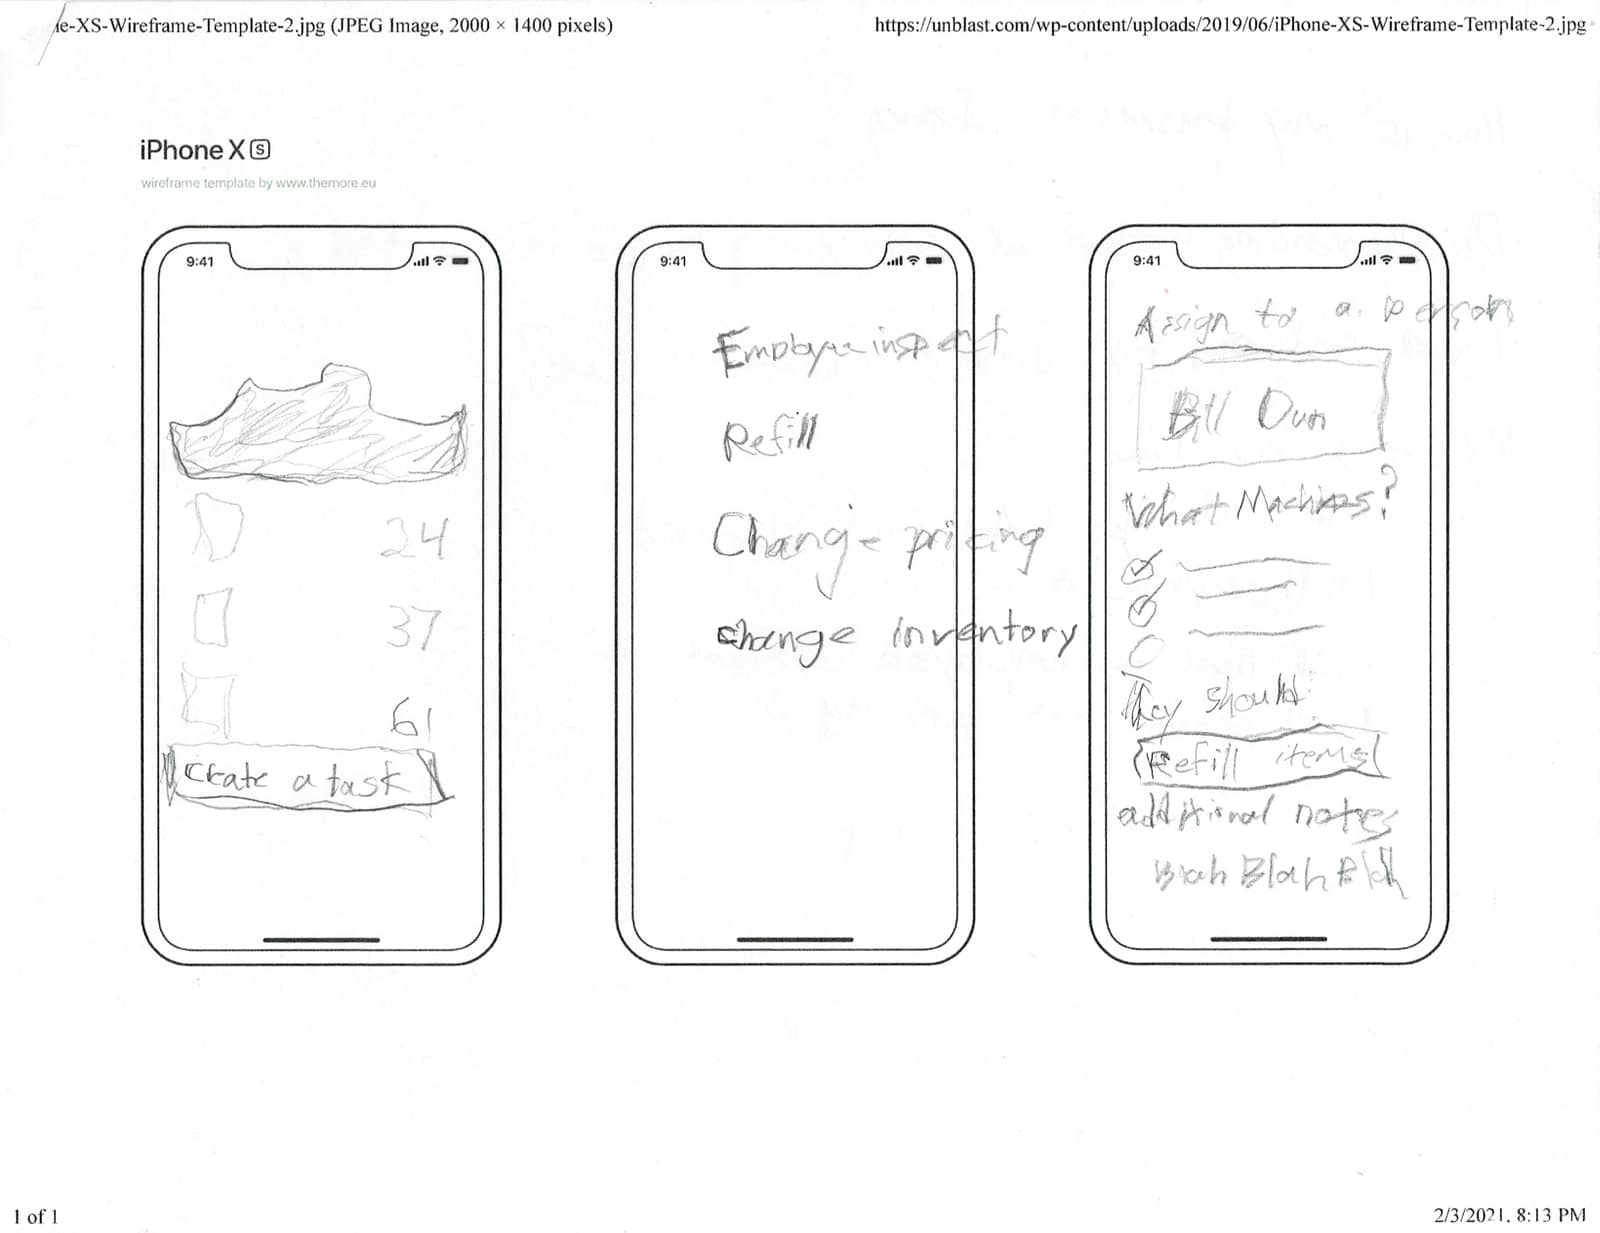 ie-XS-Wireframe-Template-2.jpg (JPEG Image, 2000 × 1400 pixels)
https://unblast.com/wp-content/uploads/2019/06/iPhone-XS-Wireframe-Template-2.jpg
iPhone XS
wireframe template by www.themore.eu
9:41
24
37
61
Create a task
9:41
Employee inspect
Refill
Change pricing
change inventory
9:41
Assign to a person
Bill Dun
What Machines?
They should
Refill items
additional notes
Blah Blah Blah
1 of 1
2/3/2021, 8:13 PM